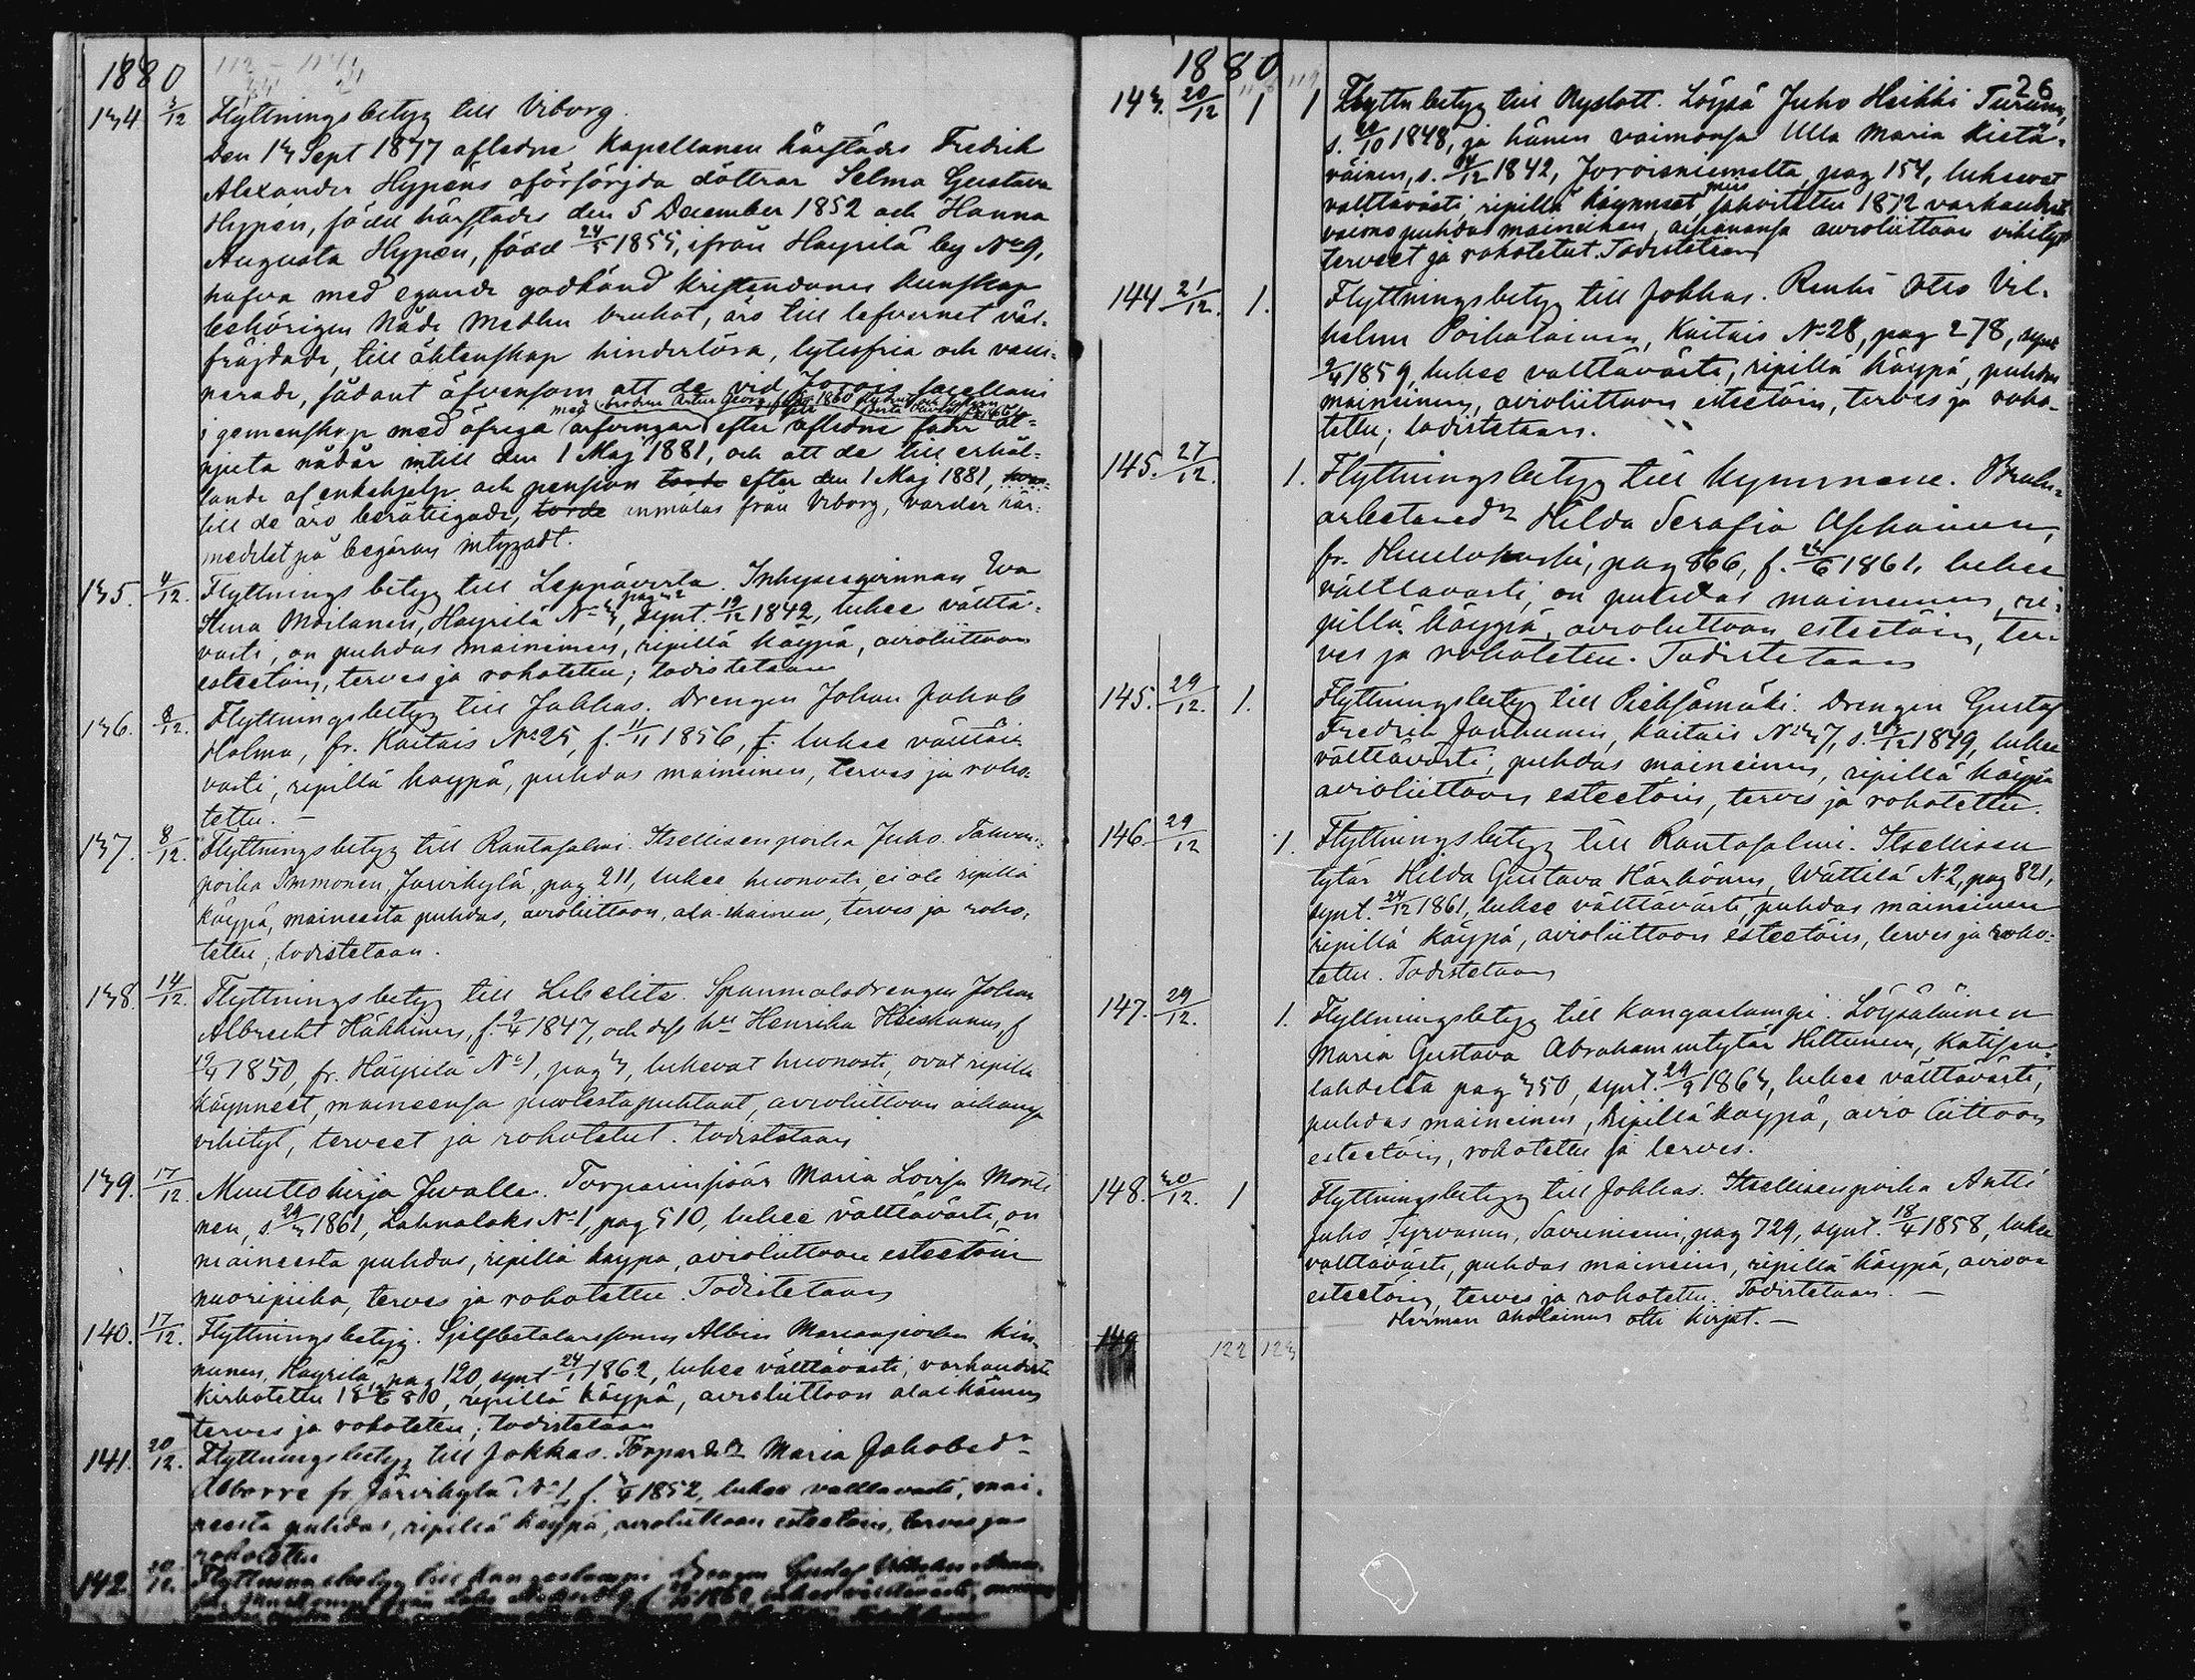 1880
134 3/12 Flyttningsbetyg till Viborg.
Den 13 Sept 1877 aflidne Kapellanen härstädes Fredrik
Alexander Hypéns oförsörjda döttrar Selma Gustava
Hypén, född härstädes den 5 December 1852 och Hanna
Augusta Hypén, född 24/5 1855, ifrån Häyrilä by No 9,
hafva med egande godkänd kristendoms kunskap
behörigen Nåde Medlen brukat, äro till lefvernet väl-
fräjdade, till äktenskap hinderlösa, lytesfria och vacci-
nerade, sådant äfvensom att de vid Jorois
i gemenskap med öfriga arfvingar efter aflidne fader åt-
njuta nådår intill den 1 Maj 1881, och att de till erhål-
lande af enkehjelp och pension torde efter den 1 Maj 1881,
till de äro berättigade, torde anmälas från Viborg, varder här-
medelst på begäran intygadt.
135. 4/12. Flyttningsbetyg till Leppävirta. Inhysesqvinnan Eva
Stina Moilanen, Häyrilä No 3, synt. 19/12 1842, lukee välttä-
västi, on puhdas maineinen, ripillä käypä, avioliittoon
esteetöin, terves ja rokotettu; todistetaan
136. 8/12. Flyttningsbetyg till Jokkas. Drengen Johan Jakob
Holma, fr. Kaitais No 25, f. 11/11 1856, f. lukee välttä-
västi, ripillä käypä, puhdas maineinen, terves ja roko-
tettu. —
137. 8/12. Flyttningsbetyg till Rantasalmi. Itsellisenpoika Juho
poika Immonen, Järvikylä, pag 211, lukee huonosti, ei ole ripillä
käypä, maineesta puhdas, avioliittoon ala-ikäinen, terves ja roko-
tettu, todistetaan.
138. 14/12. Flyttningsbetyg till Libelits. Spanmålsdrengen Johan
Albrecht Häkkinen, f. 9/4 1847, och dess hu Henrika Heiskanen, f
19/4 1850, fr. Häyrilä No 1, pag 3, lukevat huonosti, ovat ripillä
käynneet, maineensa puolesta puhtaat, avioliittoon
vihityt, terveet ja rokotetut. todistetaan
139. 17/12. Muuttokirja Juvalle. Torparinpiar Maria Lovisa Moni-
nen, s. 29/3 1861, Lahnalaks No 1, pag 510, lukee välttävästi, on
maineesta puhdas, ripillä käypä, avioliittoon esteetöin
nuoripiika, terves ja rokotettu. Todistetaan
140. 17/12. Flyttningsbetyg. Sjelfbetalaresonen Albin Marianpoika Kin-
nunen, Häyrilä, pag 120, synt 24/1 1862, lukee välttävästi,
ripillä käypä, avioliittoon alaikäinen
terves ja rokotettu; todistetaan
141. 20/12. Flyttningsbetyg till Jokkas. Torpar dr Maria Jakobsdr
Abborre fr. Järvikylä No 1, f. 3/4 1852, lukee välttävästi, mai-
neesta puhdas, ripillä käypä, avioliittoon esteetöin, terves ja
rokotettu
142. 20/12. Flyttningsbetyg till Kangaslampi Drengen Gustaf
1880
26
143. 20/12 1 1 Flyttn betyg till Nyslott. Löysä Juho Heikki Turunen,
1848, ja hänen vaimonsa Ulla Maria Kietä-
väinen, s. 14/12 1842, Joroisniemeltä, pag 154, lukevat
välttävästi, ripillä käynneet,
avioliittoon vihityt
terveet ja rokotetut. Todistetaan
144 21/12. 1. Flyttningsbetyg till Jokkas. Renki Otto Vil-
helm Poikolainen, Kaitais No 28, pag 278, synt
9/4 1859, lukee välttävästi, ripillä käypä, puhdas
maineinen, avioliittoon esteetöin, terves ja roko-
tettu; todistetaan.
145. 27/12. 1. Flyttningsbetyg till Kymmene. Bruks-
arbetaredr Hilda Serafia Aschainen,
fr. Huutokoski, pag 866, f. 1861, lukee
välttävästi, on puhdas maineinen, ri-
pillä käypä, avioliittoon esteetöin, ter-
ves ja rokotettu. Todistetaan
145. 29/12. 1. Flyttningsbetyg till Pieksämäki. Drengen Gustaf
Fredrik Jauhunen, Kaitais No 37, s. 1849, lukee
välttävästi, puhdas maineinen, ripillä käypä
avioliittoon esteetöin, terves ja rokotettu.
146. 29/12 1. Flyttningsbetyg till Rantasalmi. Itsellisen
tytär Hilda Gustava Härkönen, Wättilä No 2, pag 821,
synt. 24/12 1861, lukee välttävästi, puhdas maineinen
ripillä käypä, avioliittoon esteetöin, terves ja roko-
tettu. Todistetaan
147. 29/12. 1. Flyttningsbetyg till Kangaslampi. Löysäläinen
Maria Gustava Abrahamintytär Hiltunen, Katisen-
lahdelta pag 350, synt. 29/9 1863, lukee välttävästi,
puhdas maineinen, ripillä käypä, avio liittoon
esteetöin, rokotettu ja terves.
148. 30/12. 1 Flyttningsbetyg till Jokkas. Itsellisenpoika Antti
Juho Tyrvänen, Saviniemi, pag 729, synt. 18/4 1858, lukee
välttävästi, puhdas maineinen, ripillä käypä, avioon
esteetöin, terves ja rokotettu. Todistetaan. —
Herman Aholainen otti kirjat. —
149 122 123